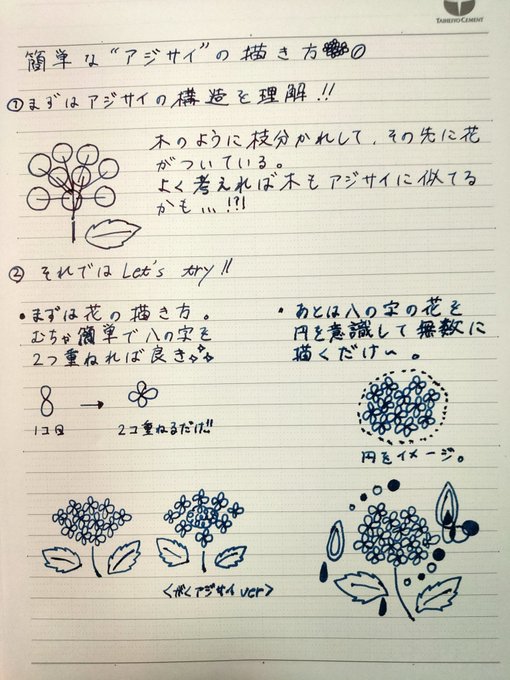 TAIHEIYO CEMENT
簡単な“アジサイ”の描き方
①まずはアジサイの構造を理解!!
木のように枝分かれして、その先に花
がついている。
よく考えれば木もアジサイに似てる
かも...!?!
②それでは Let's try!!
・まずは花の描き方。
むちゃ簡単で八の字を
2つ重ねれば良き
・あとは八の字の花を
円を意識して無数に
描くだけ〜。
1コ目
2コ重ねるだけ!!
円をイメージ。
<がくアジサイver>